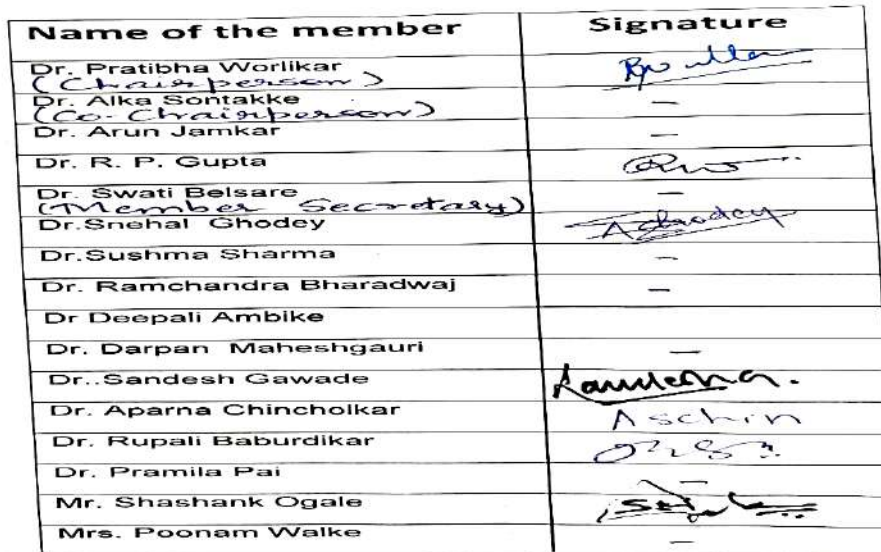 Name of the member Signature
Dr. Pratibha Worlikar
(Chairperson)
Dr. Alka Sontakke –
(Co-Chairperson)
Dr. Arun Jamkar –
Dr. R. P. Gupta
Dr. Swati Belsare –
(Member Secretary)
Dr.Snehal Ghodey
Dr.Sushma Sharma –
Dr. Ramchandra Bharadwaj –
Dr Deepali Ambike
Dr. Darpan Maheshgauri –
Dr..Sandesh Gawade
Dr. Aparna Chincholkar Aschin
Dr. Rupali Baburdikar
Dr. Pramila Pai –
Mr. Shashank Ogale
Mrs. Poonam Walke –